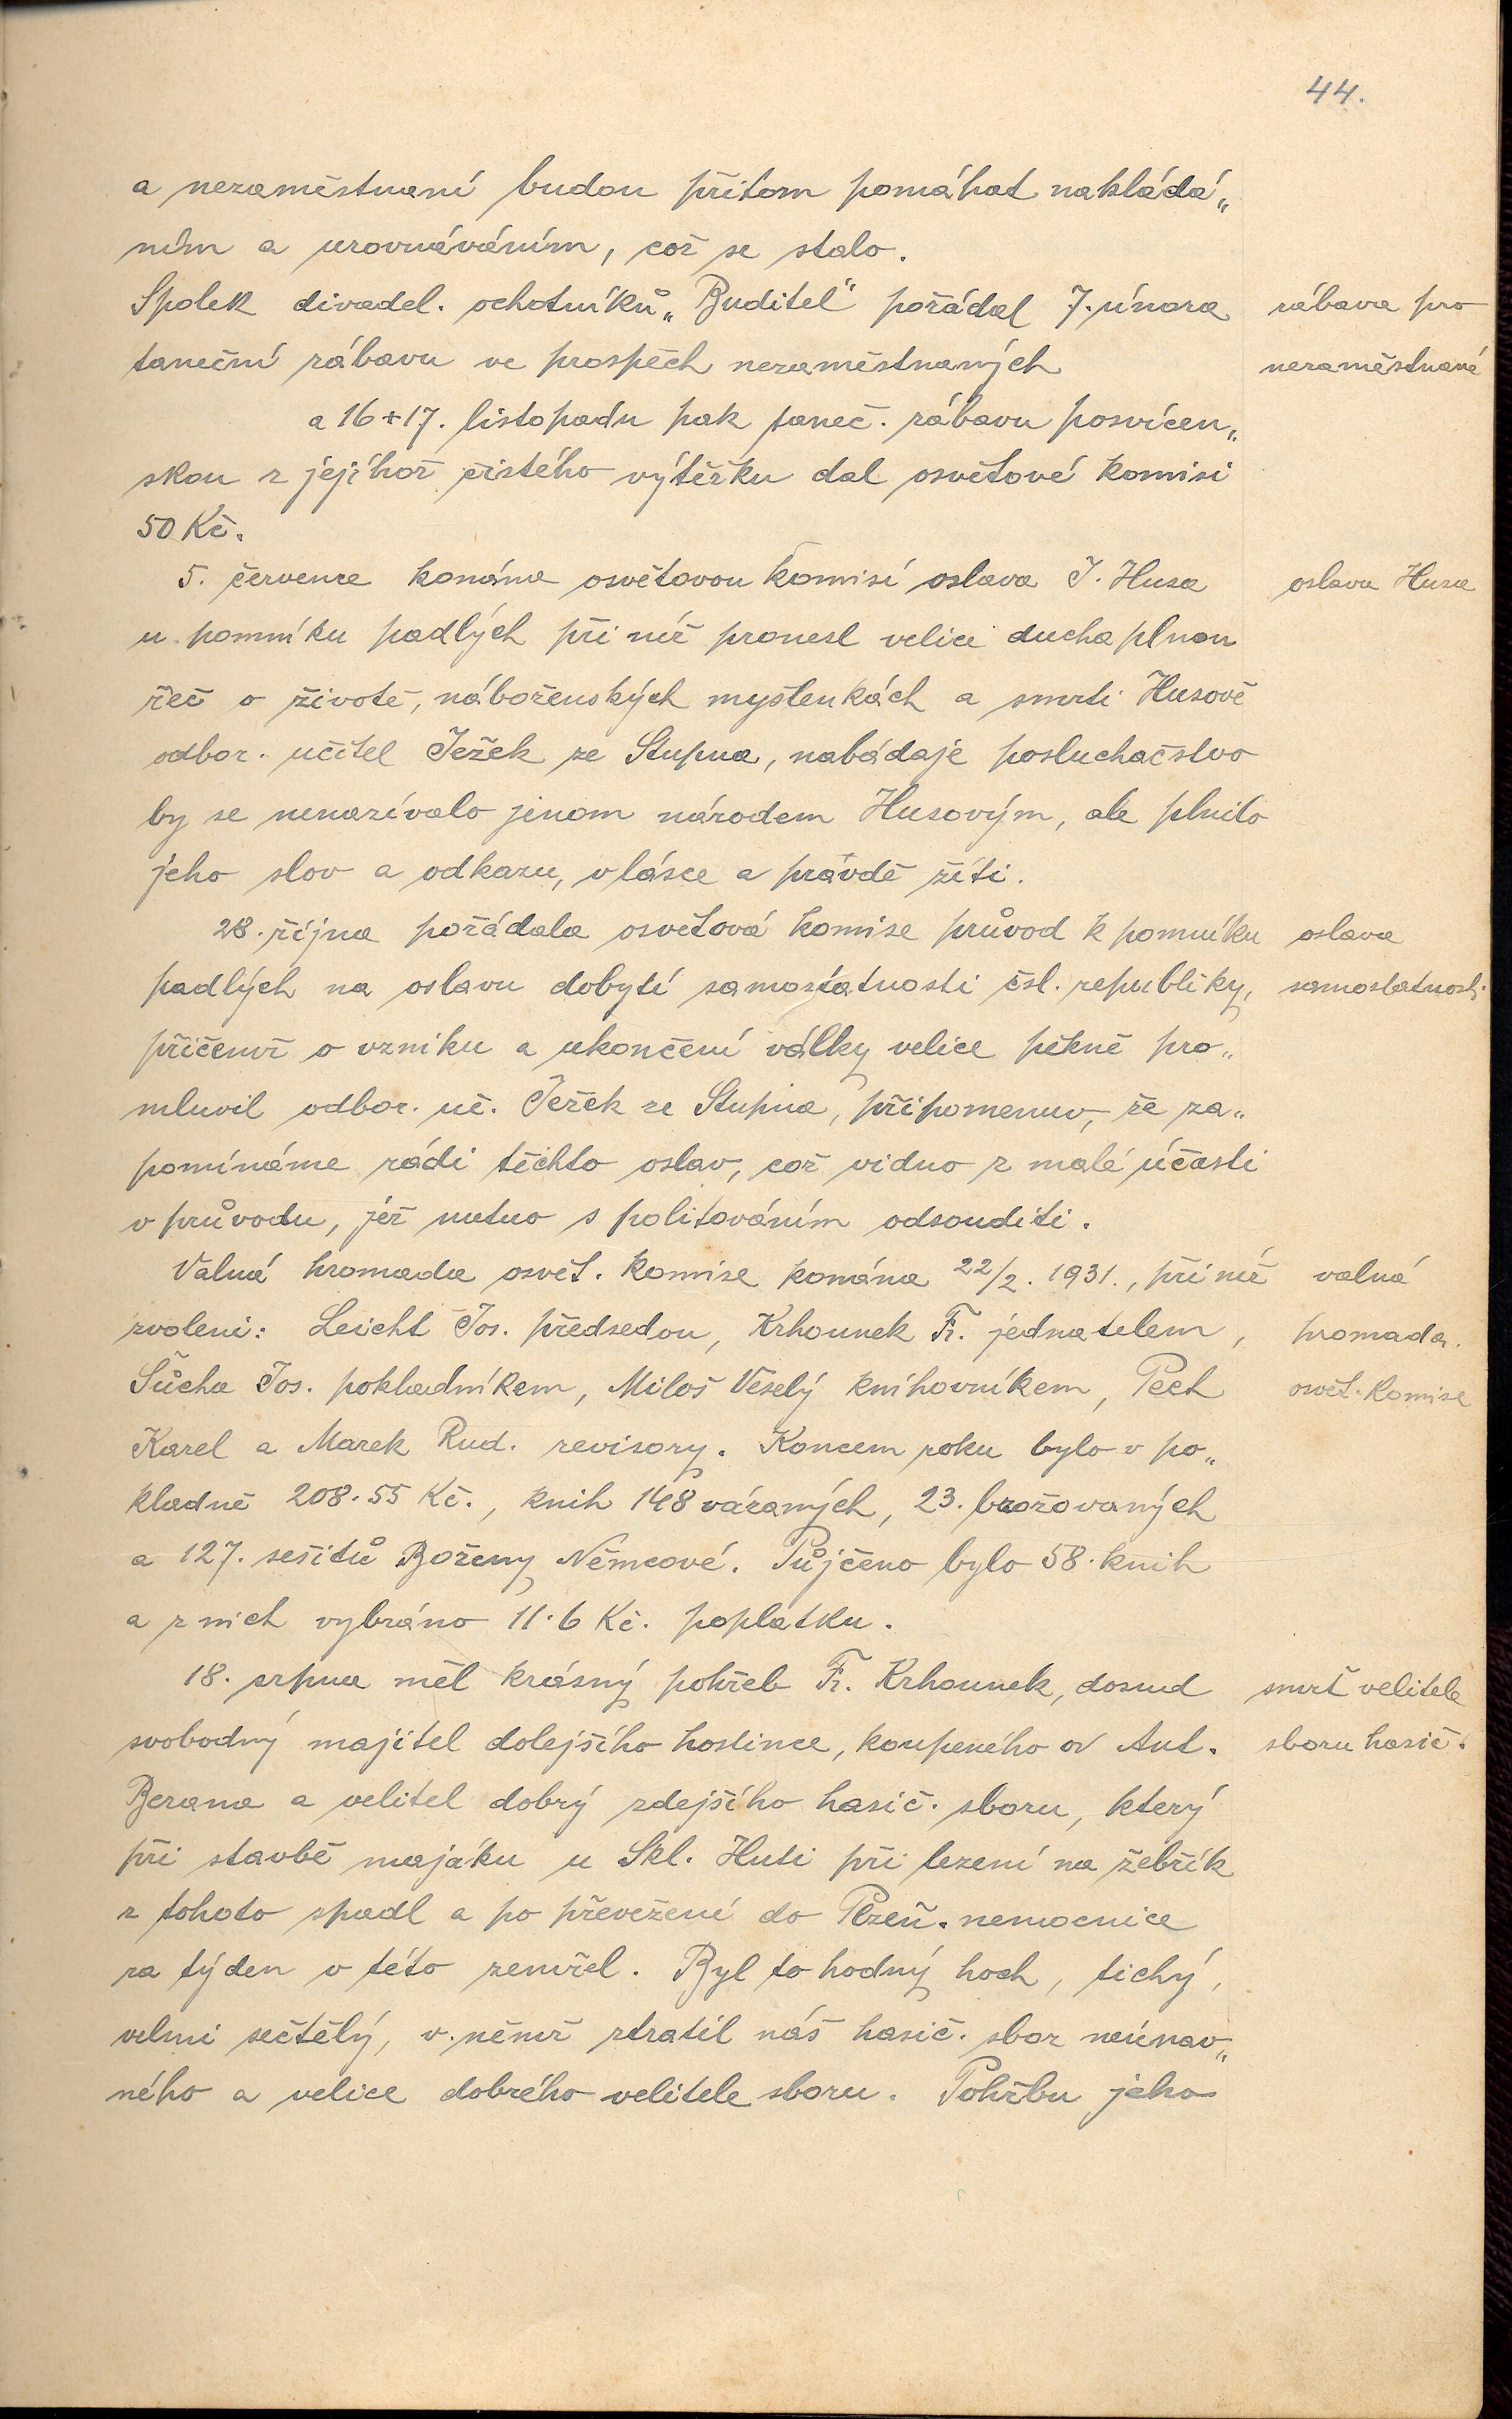 44.
a nezaměstnaní budou přitom pomáhat nakládá„
ním a urovnáváním, což se stalo.
Spolek divadel. ochotníků „Buditel“ pořádal 7. února
zábava pro
taneční zábavu ve prospěch nezaměstnaných
nezaměstnané
a 16+17. listopadu pak taneč. zábavu posvícen„
skou z jejíhož čistého výtěžku dal osvětové komisi
50 Kč.
5. července konána osvětovou komisí oslava J. Husa
oslava Husa
u pomníku padlých při níž pronesl velice duchaplnou
řeč o životě, náboženských myšlenkách a smrti Husově
odbor. učitel Ježek ze Stupna, nabádaje posluchačstvo
by se nenazívalo jenom národem Husovým, ale plnilo
jeho slov a odkazu, v lásce a právdě žíti.
28. října pořádala osvětová komise průvod k pomníku
oslava
padlých na oslavu dobytí samostatnosti čsl. republiky,
samostatnosti
přičemž o vzniku a ukončení války velice pěkně pro„
mluvil odbor. uč. Ježek ze Stupna, připomenuv, že za„
pomínáme rádi těchto oslav, což vidno z malé účasti
v průvodu, jež nutno s politováním odsouditi.
Valná hromada osvět. komise konána 22/2. 1931., při níž
valná
zvoleni: Leicht Jos. předsedou, Krhounek Fr. jednatelem,
hromada.
Šůcha Jos. pokladníkem, Miloš Veselý knihovníkem, Pech
osvět. komise
Karel a Marek Rud. revisory. Koncem roku bylo v po„
kladně 208.55 Kč., knih 148 vázaných, 23. brožovaných
a 127. sešitů Boženy Němcové. Půjčeno bylo 58. knih
a z nich vybráno 11.6 Kč. poplatku.
18. srpna měl krásný pohřeb Fr. Krhounek, dosud
smrt velitele
svobodný majitel dolejšího hostince, koupeného od Ant.
sboru hasič.
Berana a velitel dobrý zdejšího hasič. sboru, který
při stavbě majáku u Skl. Huti při lezení na žebřík
z tohoto spadl a po převežení do Plzeň. nemocnice
za týden v této zemřel. Byl to hodný hoch, tichý,
velmi sečtělý, v němž ztratil náš hasič. sbor neúnav„
ného a velice dobrého velitele sboru. Pohřbu jeho